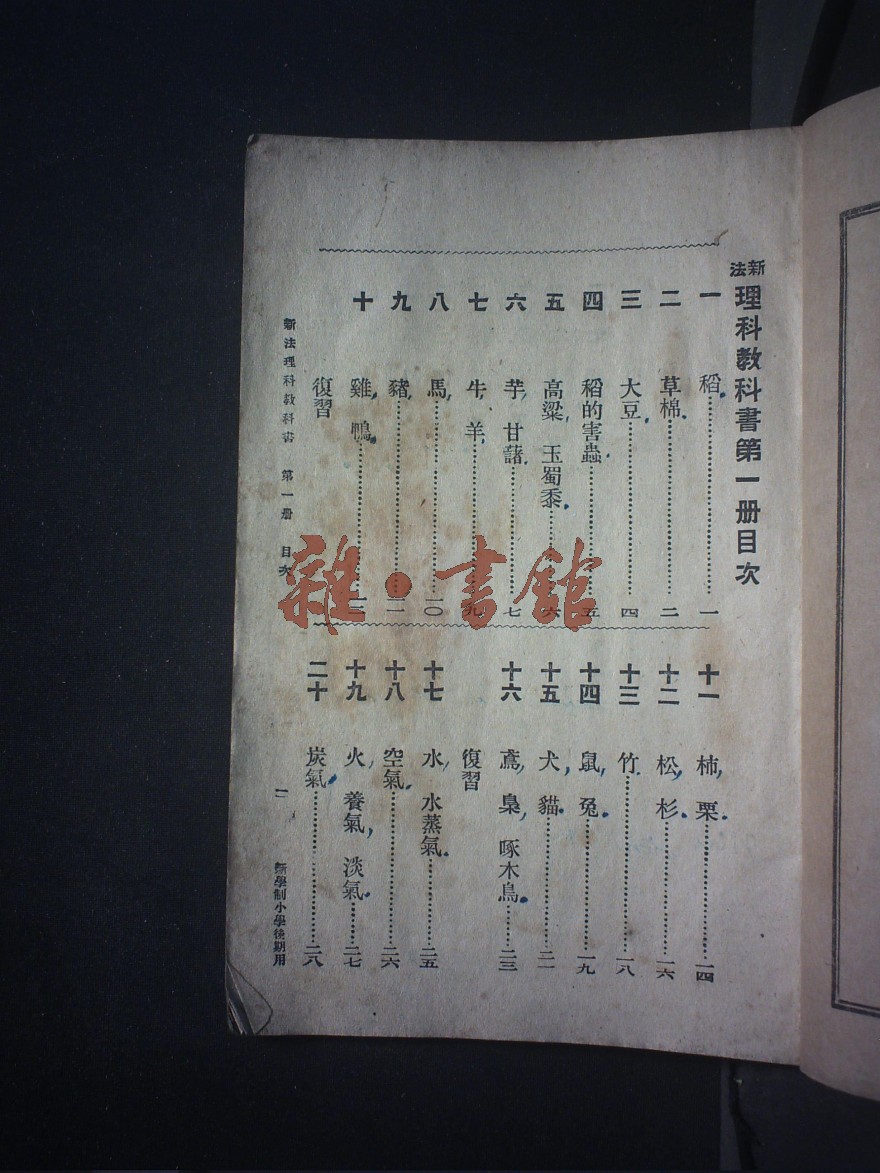 新法理科教科書第一册目次
一 稻………一
二 草棉………二
三 大豆………四
四 稻的害蟲………五
五 高粱 玉蜀黍………六
六 芋 甘藷………七
七 牛 羊………九
八 馬………一〇
九 豬………一一
十 雞 鴨………一三
復習
十一 柿 栗………一四
十二 松 杉………一六
十三 竹………一八
十四 鼠 兔………一九
十五 犬 貓………二一
十六 鳶 梟 啄木鳥………二三
復習
十七 水 水蒸氣………二五
十八 空氣………二六
十九 火 養氣 淡氣………二七
二十 炭氣………二八
新法理科教科書 第一册 目次
一
新學制小學後期用
雜·書館